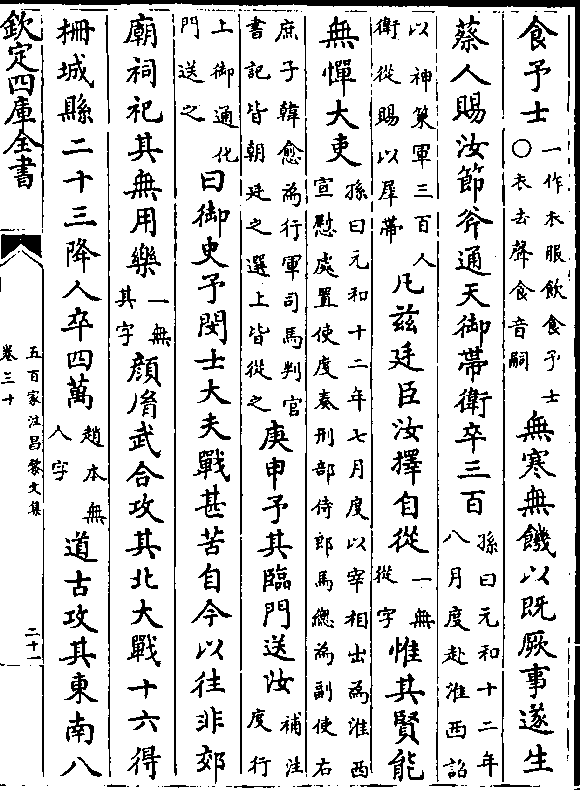 食予士一作衣服飲食予士○衣去聲食音嗣無寒無饑以既厥事遂生
蔡人賜汝節斧通天御帶衛卒三百孫曰元和十二年八月度赴淮西詔
以神策軍三百人衛從賜以犀帶凡兹廷臣汝擇自從一無從字惟其賢能
無憚大吏孫曰元和十二年七月度以宰相出為淮西宣慰處置使度奏刑部侍郎馬總為副使右
庶子韓愈為行軍司馬判官書記皆朝廷之選上皆從之庚申予其臨門送汝補注度行
上御通化門送之曰御史予閔士大夫戰甚苦自今以往非郊
廟祠祀其無用樂一無其字顔胤武合攻其北大戰十六得
柵城縣二十三降人卒四萬趙本無人字道古攻其東南八
欽定四庫全書
五百家注昌黎文集
卷三十
二十一